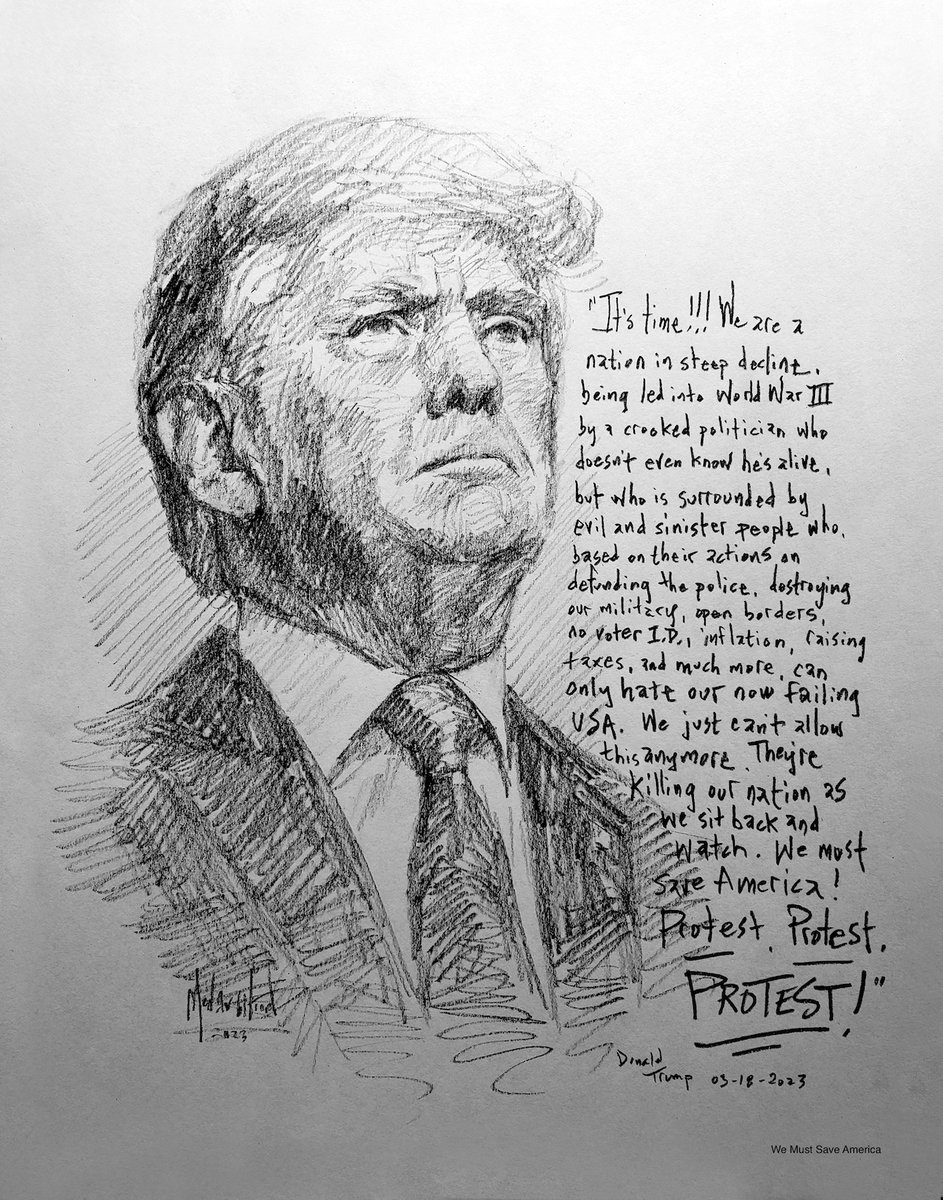 "It's time!!! We are a
nation in steep decline,
being led into World War III
by a crooked politician who
doesn't even know he's alive,
but who is surrounded by
evil and sinister people who,
based on their actions on
defunding the police, destroying
our military, open borders,
no voter I.D., inflation, raising
taxes, and much more, can
only hate our now failing
USA. We just can't allow
this anymore. They're
killing our nation as
we sit back and
watch. We must
save America!
Protest, Protest,
PROTEST!"
Donald
Trump 03-18-2023
23
We Must Save America